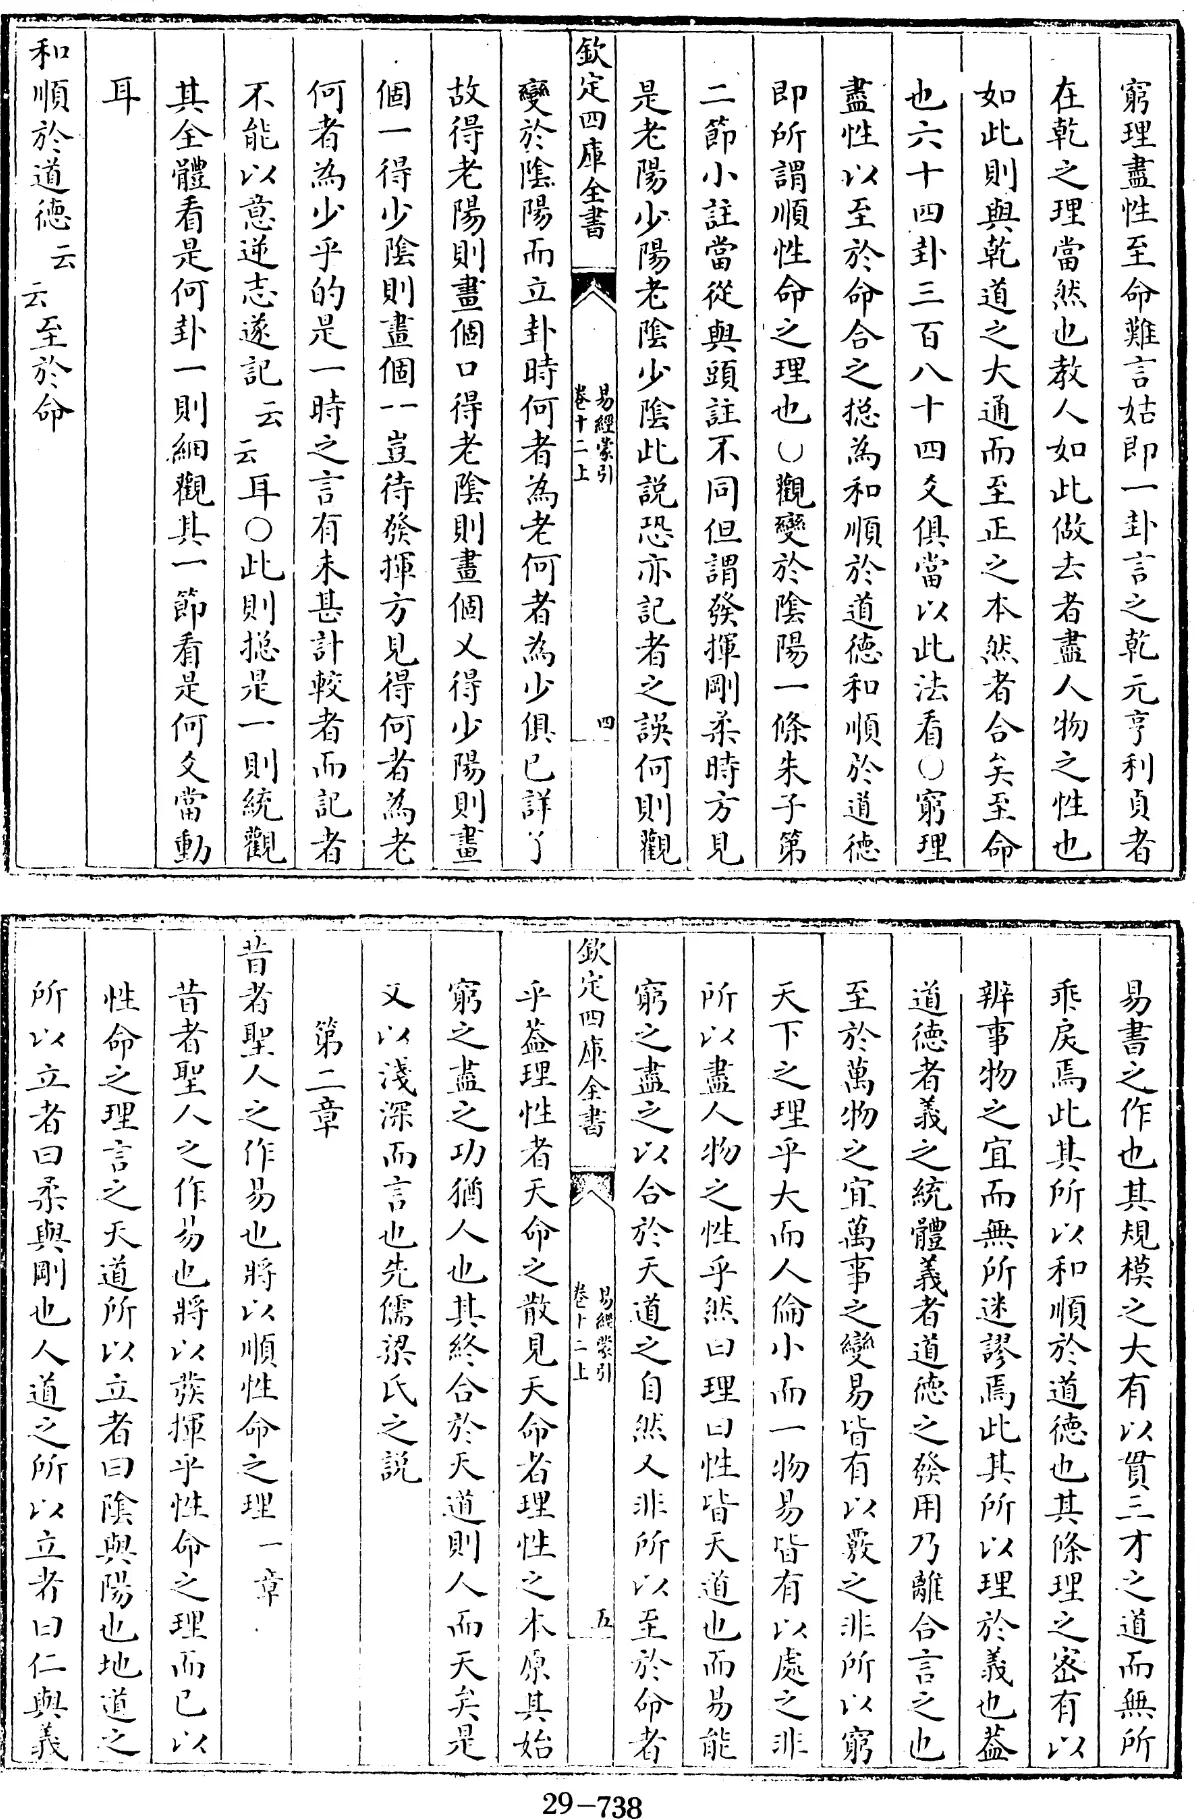 窮理盡性至命難言姑即一卦言之乾元亨利貞者
在乾之理當然也教人如此做去者盡人物之性也
如此則與乾道之大通而至正之本然者合矣至命
也六十四卦三百八十四爻俱當以此法看○窮理
盡性以至於命合之揔為和順於道德和順於道德
即所謂順性命之理也○觀變於陰陽一條朱子第
二節小註當從與頭註不同但謂發揮剛柔時方見
是老陽少陽老陰少陰此說恐亦記者之誤何則觀
欽定四庫全書
易經蒙引
卷十二上
四
變於陰陽而立卦時何者為老何者為少俱已詳了
故得老陽則畫個口得老陰則畫個乂得少陽則畫
個一得少陰則畫個一一豈待發揮方見得何者為老
何者為少乎的是一時之言有未甚計較者而記者
不能以意逆志遂記云云耳○此則揔是一則統觀
其全體看是何卦一則細觀其一節看是何爻當動
耳
和順於道德云云至於命
易書之作也其規模之大有以貫三才之道而無所
乖戾焉此其所以和順於道德也其條理之密有以
辨事物之宜而無所迷謬焉此其所以理於義也蓋
道德者義之統體義者道德之發用乃離合言之也
至於萬物之宜萬事之變易皆有以覈之非所以窮
天下之理乎大而人倫小而一物易皆有以處之非
所以盡人物之性乎然曰理曰性皆天道也而易能
窮之盡之以合於天道之自然又非所以至於命者
欽定四庫全書
易經蒙引
卷十二上
五
乎蓋理性者天命之散見天命者理性之本原其始
窮之盡之功猶人也其終合於天道則人而天矣是
又以淺深而言也先儒梁氏之說
第二章
昔者聖人之作易也將以順性命之理一章
昔者聖人之作易也將以發揮乎性命之理而已以
性命之理言之天道所以立者曰陰與陽也地道之
所以立者曰柔與剛也人道之所以立者曰仁與義
29-738